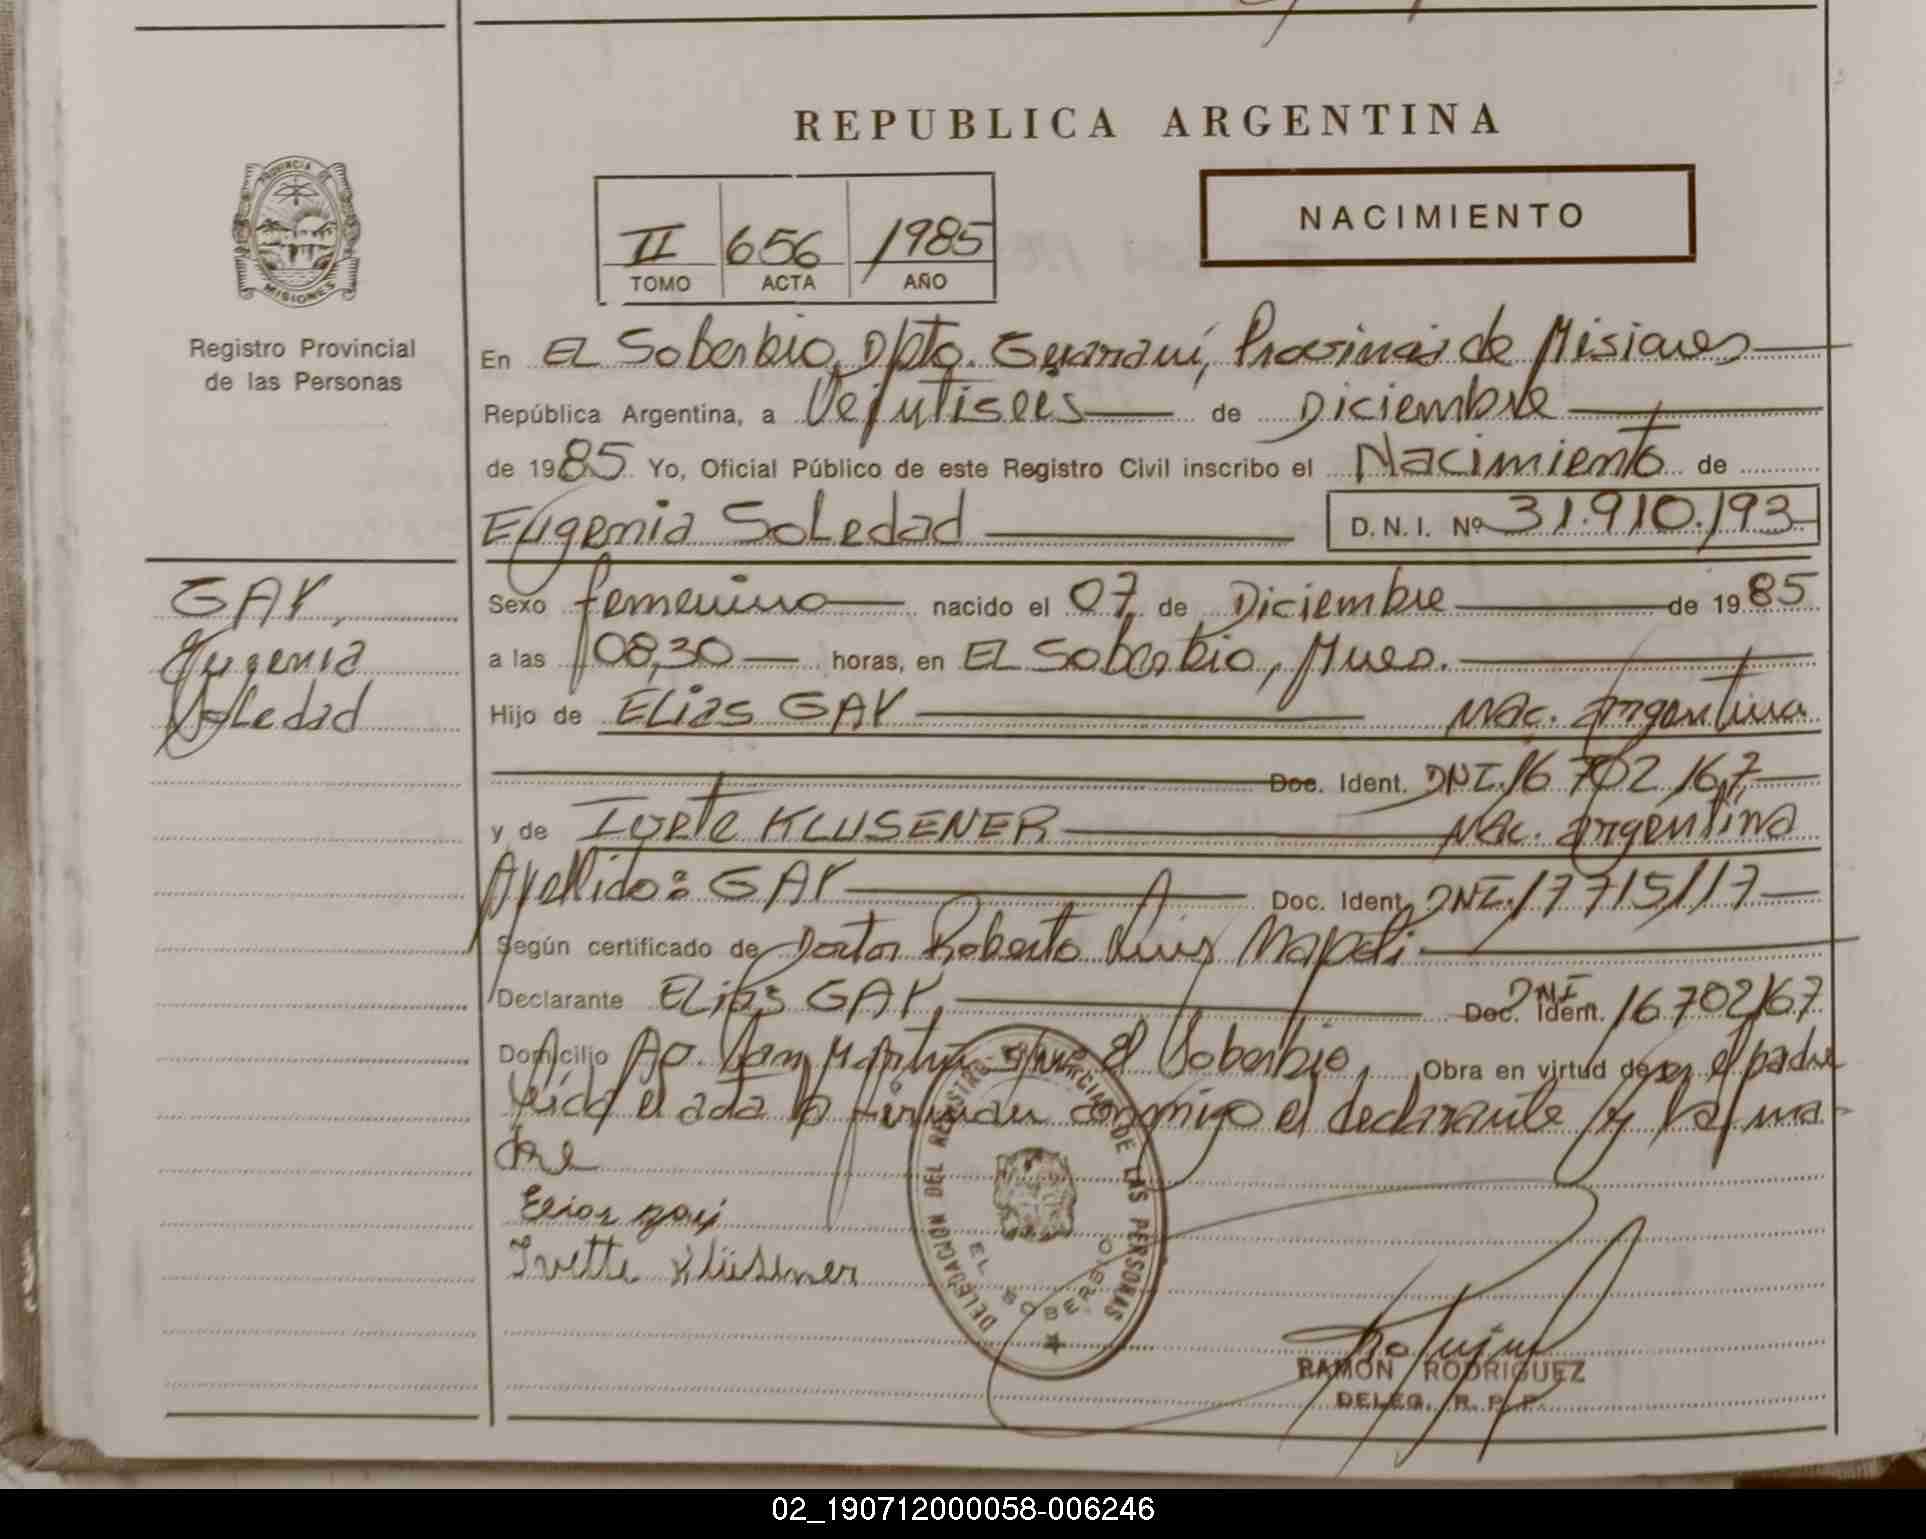 REPUBLICA ARGENTINA
PROVINCIA DE
MISIONES
Registro Provincial
de las Personas
II 656 1985
TOMO ACTA AÑO
NACIMIENTO
En EL Soberbio, Dpto. Guaraní, Provincia de Misiones
República Argentina, a Veintiseis de Diciembre
de 1985 Yo, Oficial Público de este Registro Civil inscribo el Nacimiento de
Eugenia Soledad D.N.I. Nº 31.910.193
GAY,
Eugenia
Soledad
Sexo femenino nacido el 07 de Diciembre de 1985
a las 08,30 horas, en EL Soberbio, Mnes.
Hijo de Elias GAY Nac. argentina
Doc. Ident. DNI. 16 702 167
y de Ivete KLUSENER Nac. argentina
Apellido: GAY Doc. Ident. DNI. 17 715 117
Según certificado de Doctor Roberto Luis Napoli
Declarante Elias GAY, Doc. Ident. DNI 16 702 167
Domicilio Av. San Martin s/nº El Soberbio, Obra en virtud de ser el padre
leida el acta la firman conmigo el declarante y la ma-
dre
Elias gay
Ivette Klüsener
DELEGACION DEL REGISTRO PROVINCIAL DE LAS PERSONAS
EL SOBERBIO
RAMON RODRIGUEZ
DELEG. R. P. P.
02_190712000058-006246